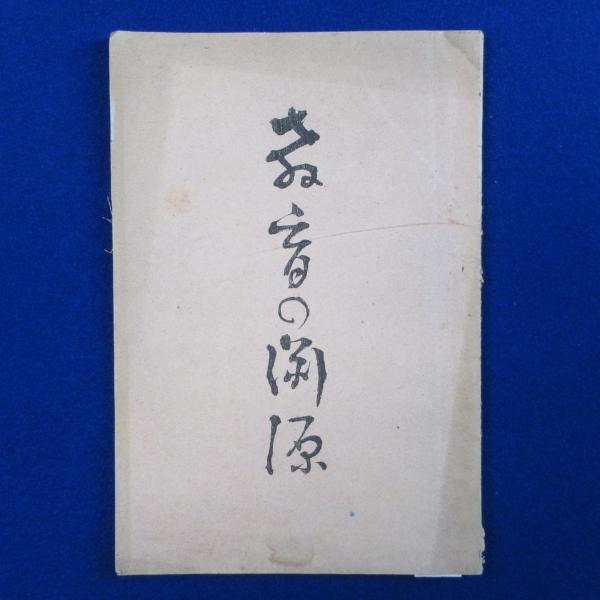 教育の淵源